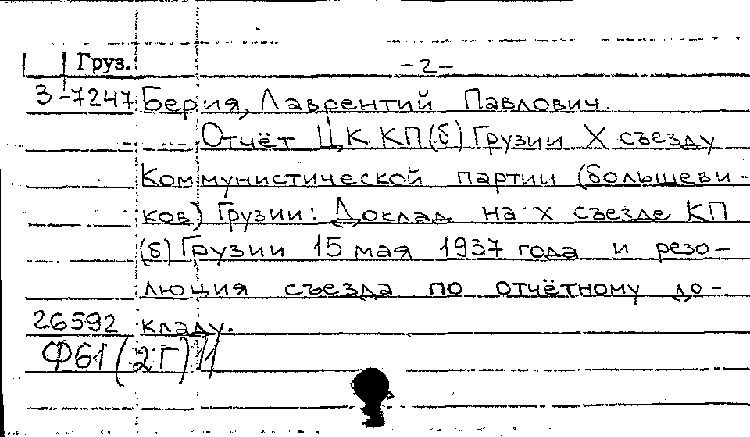 Груз. -2-
3-7247 Берия, Лаврентий Павлович.
Отчёт ЦК КП(б) Грузии X съезду
Коммунистической партии (большеви-
ков) Грузии: Доклад на X съезде КП
(б) Грузии 15 мая 1937 года и резо-
люция съезда по отчётному до-
26592 кладу.
Ф61(2Г)11